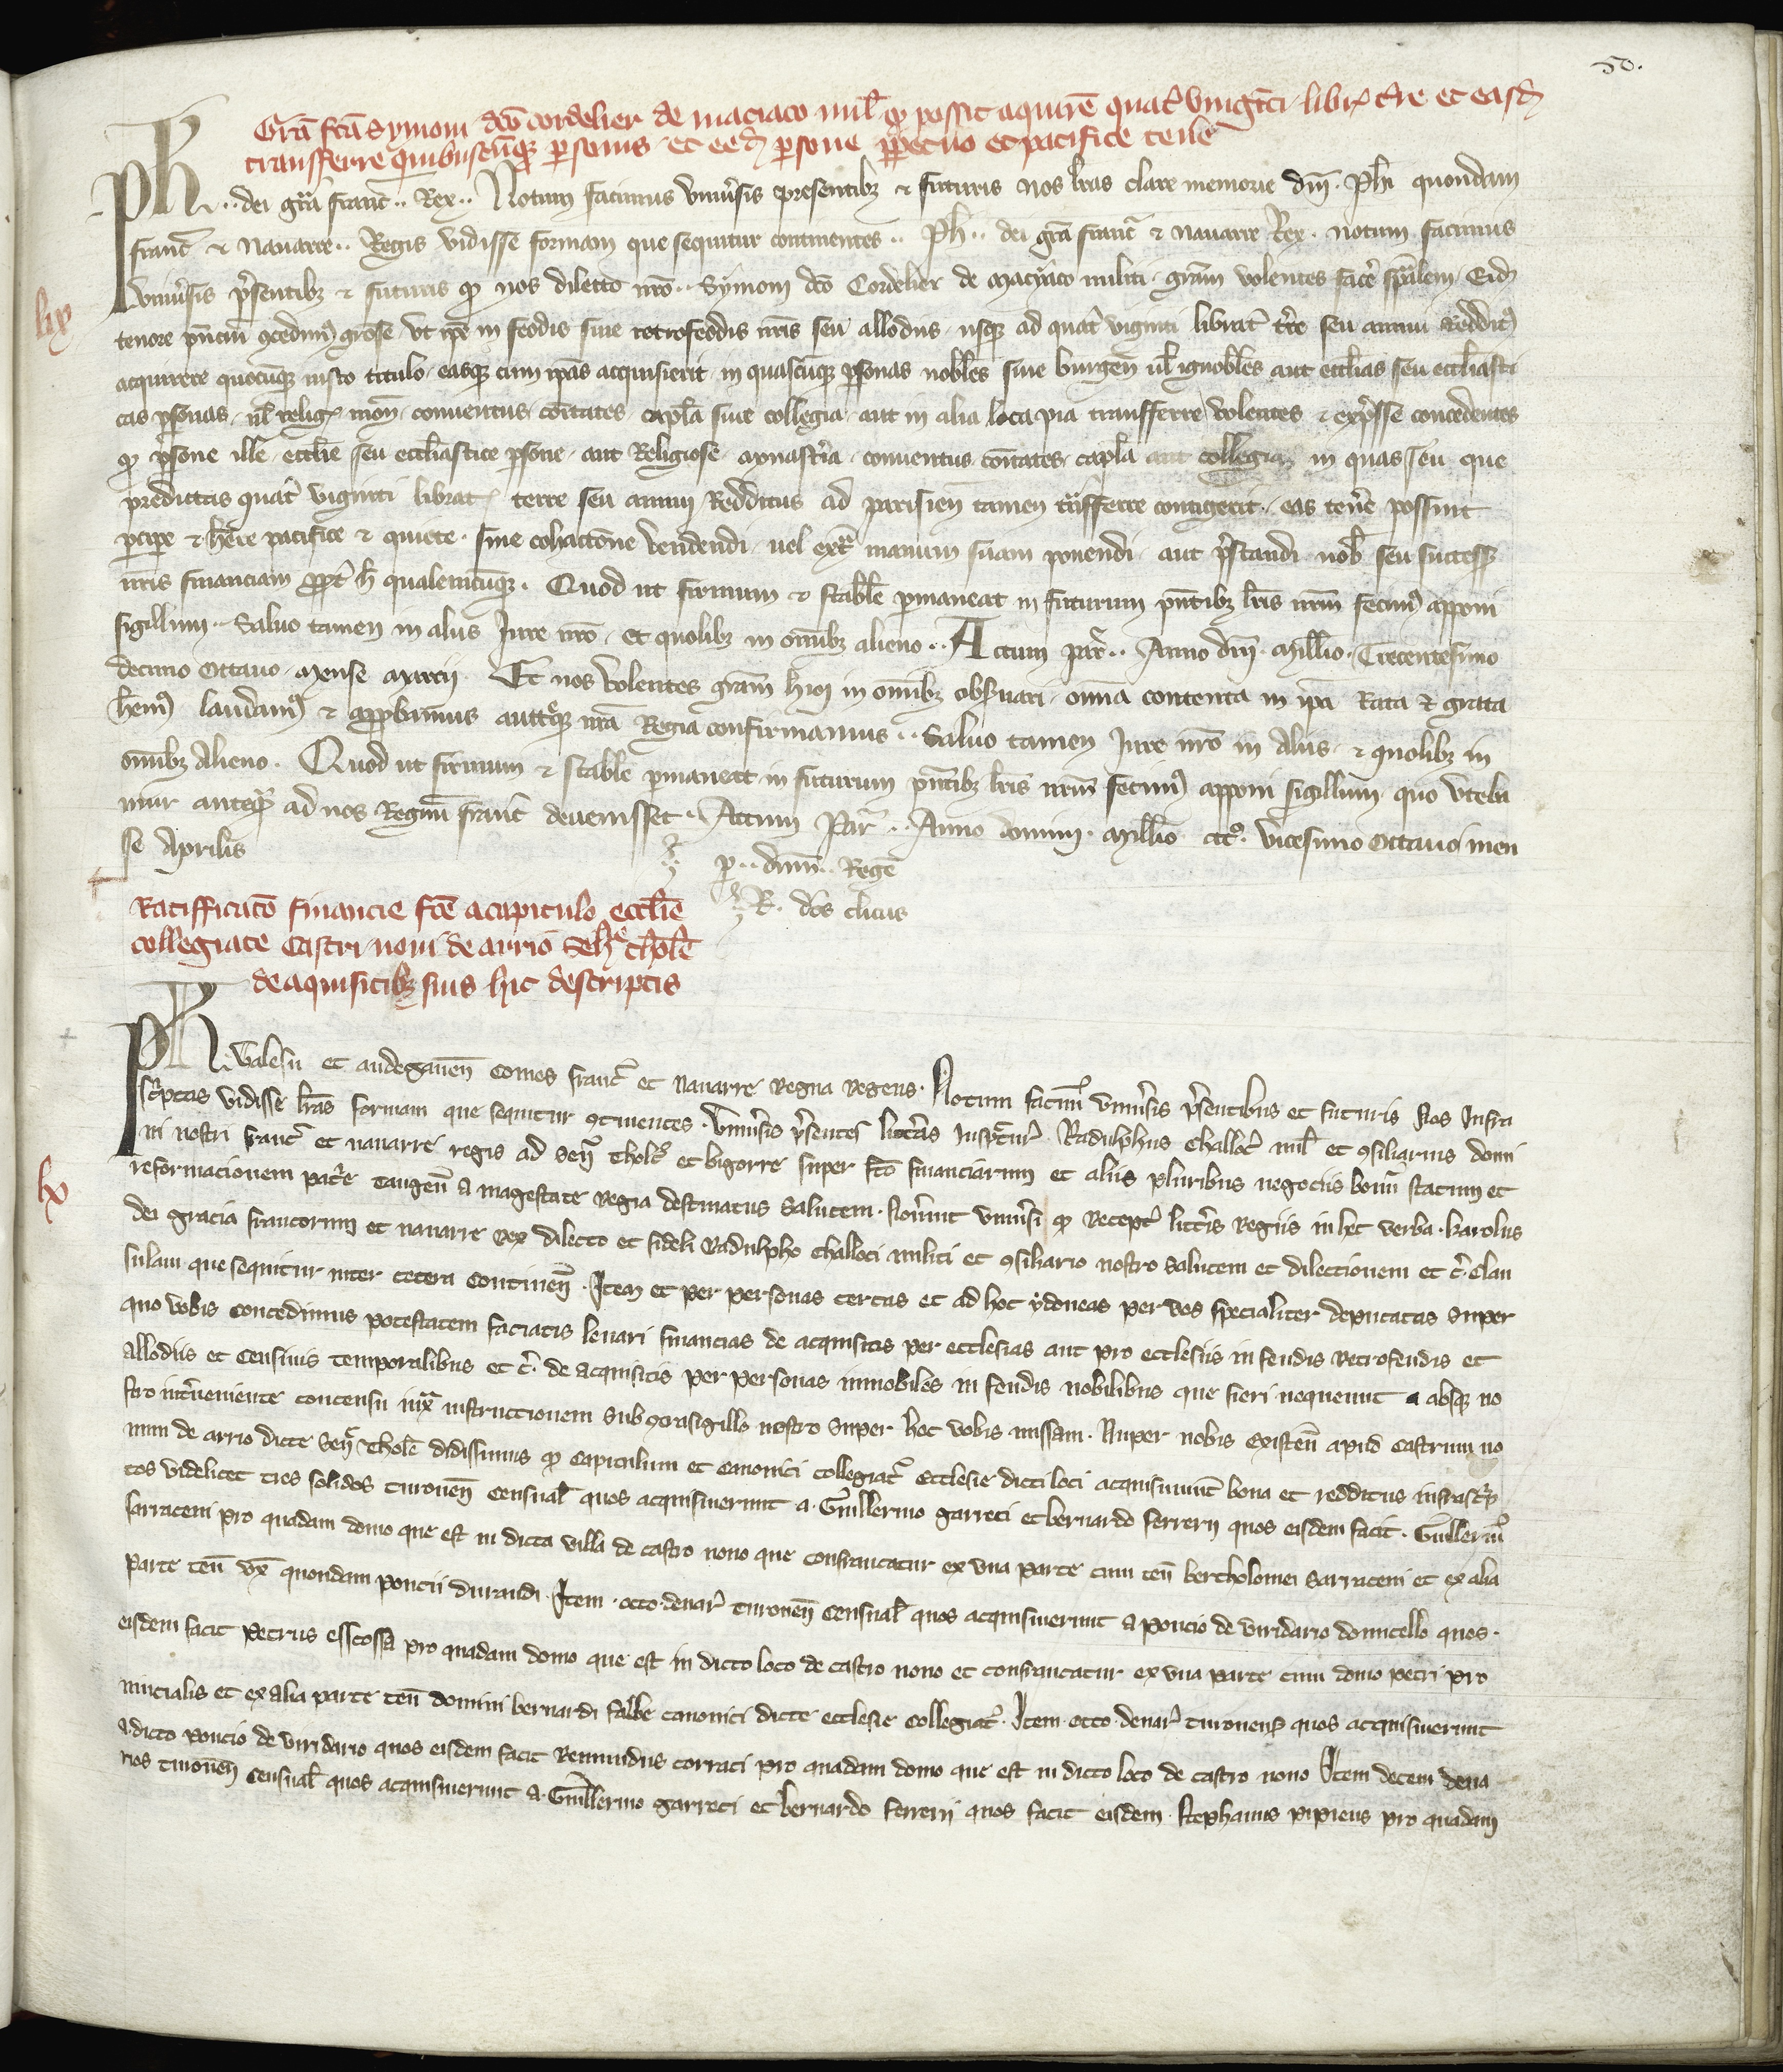 50.
Gr̃a fc̃a Symoni dc̃o cordelier de maciaco mil̃ qͥ possit aquirẽ quat̃ vingti libr̃ t̃re et easd̃
transferre quibuscũqꝫ personis et eed̃ persone perpetuo et pacifice tenẽ
Ph̃.. dei gr̃a franc̃.. Rex.. Notum facimus vniũsis presentibꝫ ⁊ futuris nos l̃ras clare memorie dñi. Ph̃i quondam
franc̃ ⁊ Nauarre.. Regis vidisse formam que sequitur continentes.. Ph̃.. dei gr̃a franc̃ ⁊ nauarre Rex. notum facimus
vniũsis p̃sentibꝫ ⁊ futuris qͥ nos dilecto nr̃o.. Symoni dc̃o Cordelier de Maciaco militi. gr̃am volentes facẽ sp̃alem. Eid̃
lix
tenore pñciũ ꝯcedimꝰ grose vt ip̃e in feodis siue retrofeodis nr̃is seu allodiis usqꝫ ad quat̃ viginti librat̃ t̃re seu annui Redditꝰ
acquirere quocũqꝫ iusto titulo. easqꝫ cum ip̃as acquisierit in quascũqꝫ ꝑsonas nobl̃es siue burgeñ ul̃ ignobl̃es aut eccl̃ias seu eccl̃iasti
cas ꝑsonas. ul̃ relig̃ moñ. conuentus. cõitates. capl̃a siue collegia. aut in alia loca pia transferre volentes ⁊ exp̃sse concedentes
qͥ ꝑsone ille eccl̃ie seu eccl̃iastice ꝑsone. aut Religiose. monast̃ia. conuentus. cõitates. capl̃a aut collegia in quas seu que
predictas quat̃ viginti librat̃ terre seu annui Redditus ad parisieñ tamen trãsferre contigerit. eas teñe possint
ꝑcipe ⁊ h̃ere pacifice ⁊ quiete. sine cohactõne vendendi. uel ext̃ manum suam ponendi. aut p̃standi nob̃ seu successꝫ
nr̃is financiam ꝓpt̃ h̃ qualemcũqꝫ. Quod ut firmum ⁊ stabl̃e ꝑmaneat in futurum pñtibꝫ l̃ris nr̃m fecimꝰ apponi
sigillum.. Saluo tamen in aliis Jure nr̃o. et quolibꝫ in om̃ibꝫ alieno.. Actum par̃.. Anno dñi. Mill̃io. Trecentesimo
decimo Octauo. Mense Marcij. Et nos volentes gr̃am hmõi in om̃ibꝫ obẽuari. omĩa contenta in ip̃a Rata ⁊ grata
h̃emꝰ laudamꝰ ⁊ approbamus auctẽqꝫ nr̃a Regia confirmamus.. Saluo tamen Jure nr̃o in Aliis. ⁊ quolibꝫ in
om̃ibꝫ Alieno. Quod ut firmum ⁊ stabl̃e ꝑmaneat in futurum pñtibꝫ l̃ris nr̃m fecimꝰ apponi sigillum quo vteba
mur anteqͣ̃ ad nos Regnũ franc̃ deuenisset. Actum Par̃.. Anno domini. Mill̃io ccc°. vicesimo Octauo men
se Aprilis
ꝑ.. dñm.. Regẽ
R. dc̃s cl̃icus
Ratifficatõ financie fc̃e a capitulo eccl̃ie
collegiate Castri noui de arrio Señ thol̃e
de aquisitibꝫ suis hic descriptis
Ph̃. Valesii et andegaueñ Comes franc̃ et Nauarre Regna Regens. Notum facimꝰ vniũsis p̃sentibus et futuris Nos Infra
sc̃ptas vidisse l̃ras formam que sequitur ꝯtinentes. Vniũsis p̃sentes litt̃as inspc̃tur̃ Radulphus challoti mil̃ et ꝯsiliarius domi
ni nostri franc̃ et nauarre regis ad Señ Thol̃ et bigorre super fc̃o financiarum et aliis pluribus negociis bonũ statum et
lx
reformacionem pat̃e tangeñ a magestate Regia destinatus Salutem. Noũint vniũsi qͥ Recept̃ litt̃is Regiis in hec verba. Karolus
dei gracia francorum et nauarre Rex dilecto et fideli Radulpho challoti militi et ꝯsiliario nostro Salutem et dilectionem et c̃. Clau
sulam que sequitur inter cetera Contineñ. Item et per personas certas et ad hoc ydoneas per vos specialiter deputatas Super
quo vobis Concedimus potestatem faciatis leuari financias de acquisitis per ecclesias aut pro ecclesiis in feudis Retrofeudis et
allodiis et Censiuis temporalibus et c̃. de acquisitis per personas innobiles in feudis nobilibus que fieri nequeunt a absqꝫ no
stro int̃ueniente concensu iux̃ instructionem sub ꝯtrasigillo nostro Super hoc vobis missam. Nuper nobis existeñ apud Castrum no
uum de arrio dicte Señ Thol̃e didissimus qͥ Capitulum et Canonici collegiat̃ Ecclesie dicti loci acquisiuerũt bona et redditus infrasc̃p
tos videlicet tres solidos turoneñ Censual̃ quos acquisiuerunt a. Guillermo garreti et bernardo ferrerij quos eisdem facit. Guillermꝰ
sarraceni pro quadam domo que est in dicta villa de castro nouo que confrontatur ex vna parte cum teñ bertholomei Sarraceni et ex alia
parte teñ vx̃ quondam poncii durandi. Item. octo. denar̃ turoneñ Censual̃ quos acquisiuerunt a poncio de viridario domicello quos.
eisdem facit petrus esscossa pro quadam domo que est in dicto loco de castro nouo et confrontatur ex vna parte cum domo petri pro
uincialis et ex alia parte teñ domini bernardi fabbe canonici dicte ecclesie Collegiat̃. Item octo denar̃ turoneñ quos acquisiuerunt
a dicto poncio de viridario quos eisdem facit Remundus corraci pro quadam domo que est in dicto loco de castro nouo Item decem dena
rios turoneñ Censual̃ quos acquisiuerunt a. Guillermo garreti et bernardo ferrerij quos facit eisdem. Stephanus pipieus pro quadam